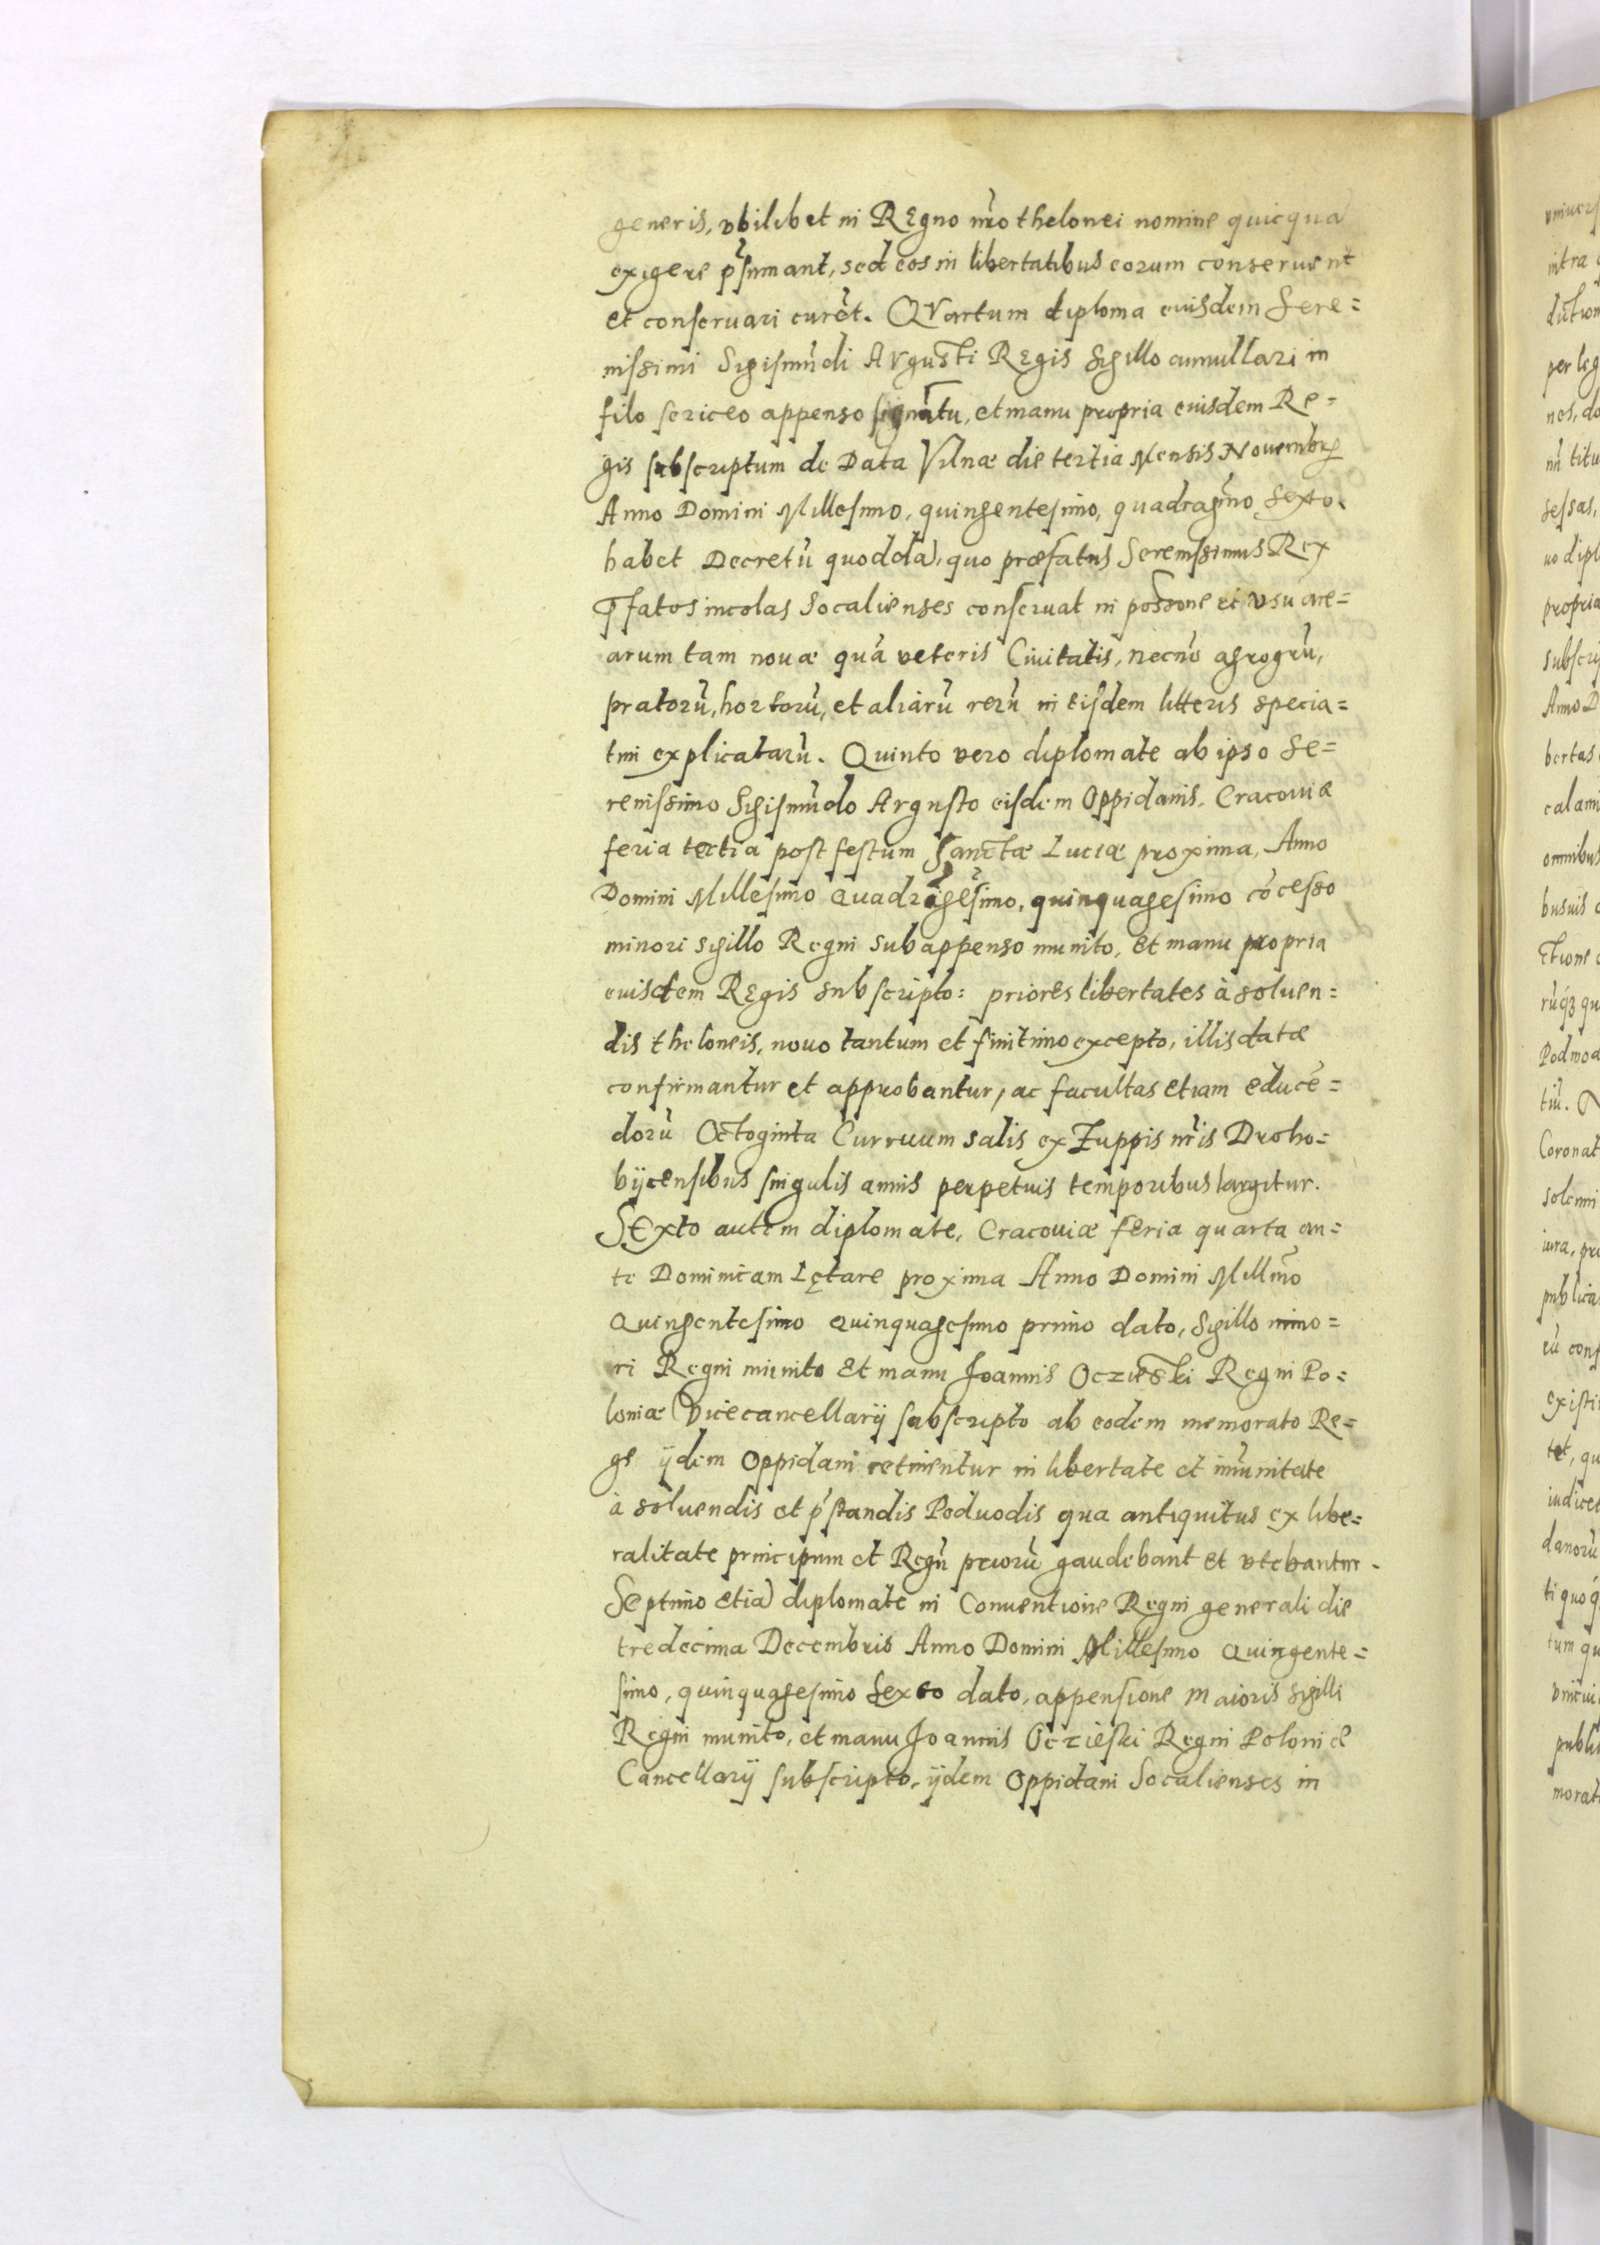 generis, vbilibet in Regno nr̃o thelonei nomine quicquã
exigere p̃sumant, sed eos in libertatibus eorum conseruent
et conseruari curẽt. Qvartum diploma eiusdem Sere=
nissimi Sigismũdi Avgusti Regis Sigillo annullari in
filo sericeo appenso signãtu, et manu propria eiusdem Re=
gis subscriptum de Data Vilnæ die tertia Mensis Nouembrꝭ
Anno Domini Millesimo, quingentesimo, quadragĩmo Sexto.
habet Decretũ quoddã, quo præfatus Serenissimus Rex
p̃fatos incolas Socalienses conseruat in possone et vsu are=
arum tam nouæ quã veteris Ciuitatis, necnõ agrogrũ,
pratorũ, hortorũ, et aliarũ rerũ in eisdem litteris specia=
tim explicatarũ. Quinto vero diplomate ab ipso Se=
renissimo Sigismũdo Avgusto eisdem Oppidanis, Cracouiæ
feria tertia post festum Sanctæ Luciæ proxima, Anno
Domini Millesimo Quadragesimo, quinquagesimo cõcesso
minori sigillo Regni subappenso munito, et manu propria
eiusdem Regis subscripto: priores libertates à soluen=
dis theloneis, nouo tantum et finitimo excepto, illis datæ
confirmantur et approbantur, ac facultas etiam educẽ=
dorũ Octoginta Curruum salis ex Zuppis nr̃is Droho=
bijcensibus singulis annis perpetuis temporibus largitur.
Sexto autem diplomate, Cracouiæ feria quarta an=
te Dominicam Lętare proxima Anno Domini Millmõ
Quingentesimo Quinquagesimo primo dato, Sigillo mino=
ri Regni munito et manu Joannis Oczieski Regni Po=
loniæ Vicecancellarij subscripto ab eodem memorato Re=
ge ijdem Oppidani retinentur in libertate et im̃unitate
à soluendis et p̃standis Poduodis qua antiquitus ex libe=
ralitate principum et Regũ priorũ gaudebant et vtebantur.
Septimo etiã diplomate in Conuentione Regni generali die
tredecima Decembris Anno Domini Millesimo Quingente=
simo, quinquagesimo Sexto dato, appensione maioris Sigilli
Regni munito, et manu Joannis Oczieski Regni Poloniæ
Cancellarij subscripto, ijdem Oppidani Socalienses in